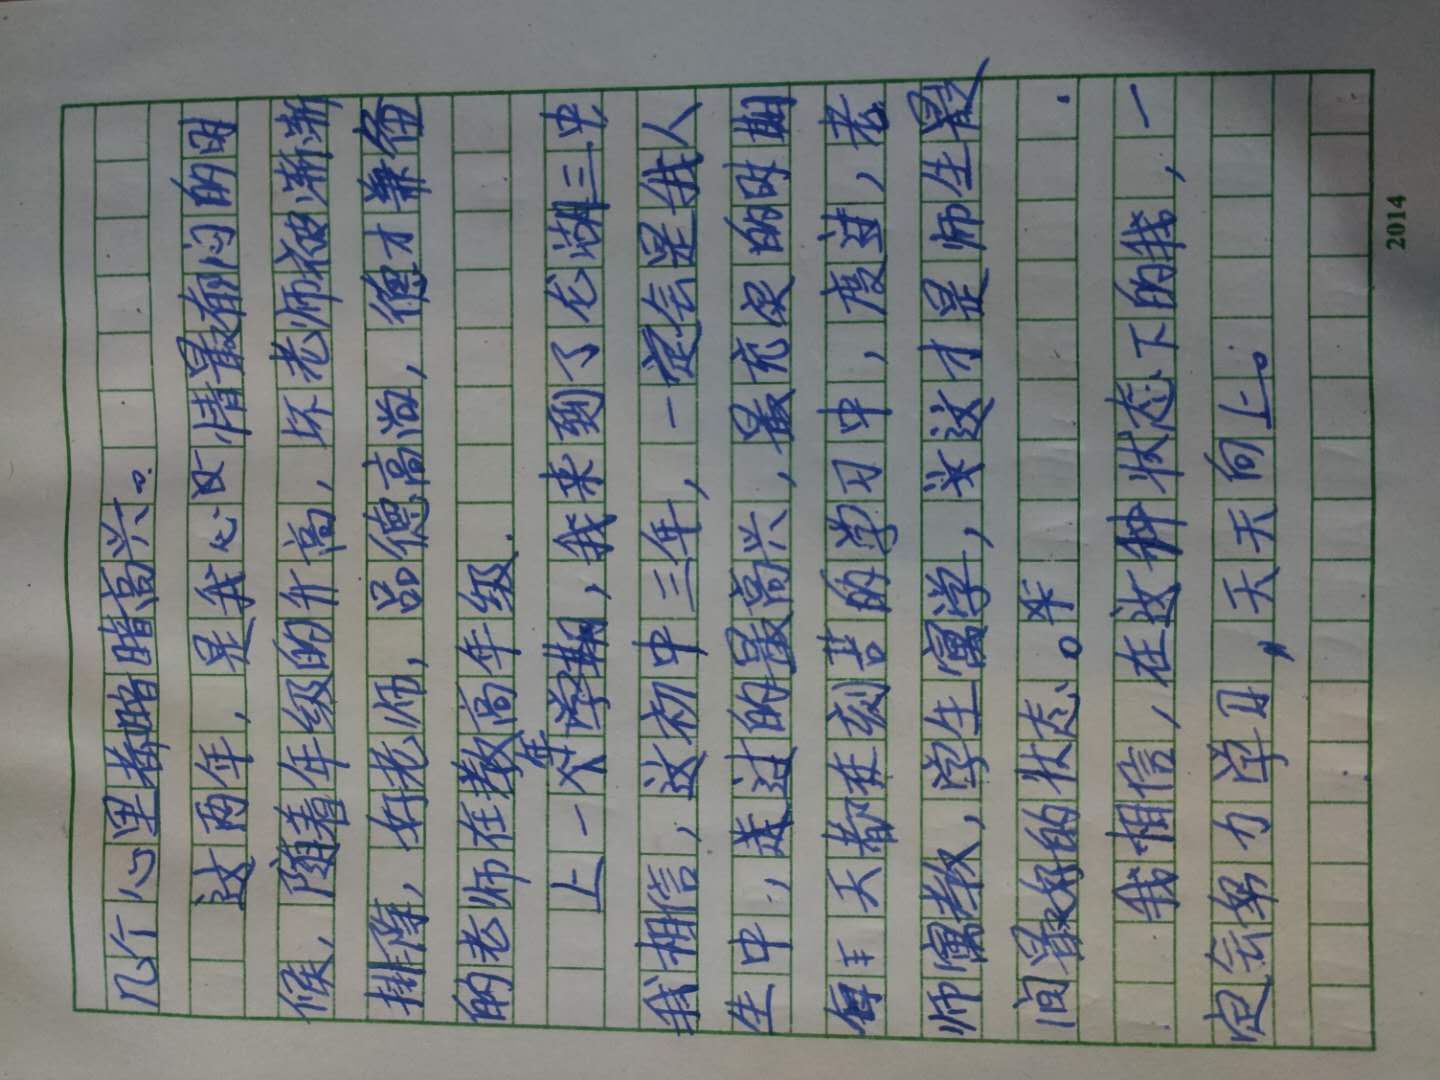 几个心里都暗暗高兴。
这两年，是我心灵情最郁闷的时
候，随着年级的升高，坏老师被渐渐
排除，好老师，品德高尚，德才兼备
的老师在教高年级．
上一个学期，我来到了龙湖三中
年
我相信，这初中三年，一定会是我人
生中，度过的最高兴，最充实的时期
每天都在刻苦的学习中，度过，老
师寓教，学生寓学，这才是师生最
间最好的状态。
我相信，在这种状态下的我，一
定会努力学习，天天向上。
2014